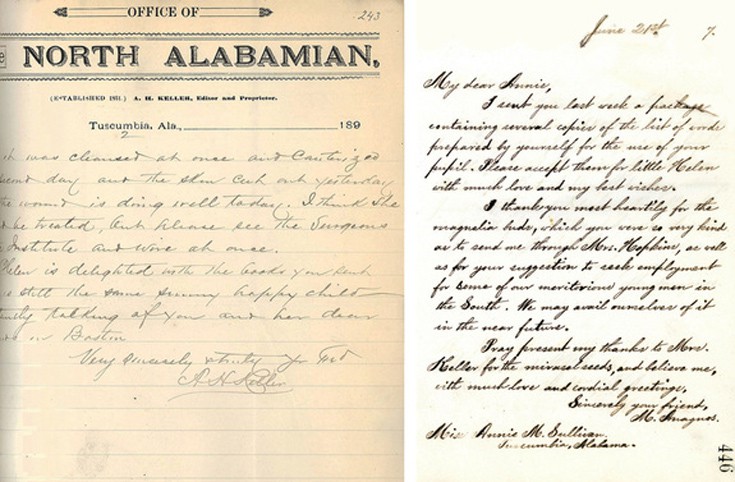 OFFICE OF
243
NORTH ALABAMIAN,
(ESTABLISHED 1831.) A. H. KELLER, Editor and Proprietor.
Tuscumbia, Ala., 189
2
it was cleansed at once and Cauterized
second day and the skin cut out yesterday
the wound is doing well today. I think she
be treated, but please see the Surgeons
Institute and wire at once.
Helen is delighted with the books you sent
is still the same sunny happy child
talking of you and her dear
in Boston
Very sincerely & truly yr Frd
A. H. Keller
June 21st 7.
My dear Annie,
I sent you last week a package
containing several copies of the list of words
prepared by yourself for the use of your
pupil. Please accept them for little Helen
with much love and my best wishes.
I thank you most heartily for the
magnolia buds, which you were so very kind
as to send me through Mrs. Hopkins, as well
as for your suggestion to seek employment
for some of our meritorious young men in
the South. We may avail ourselves of it
in the near future.
Pray present my thanks to Mrs.
Keller for the mirasal seeds, and believe me,
with much love and cordial greetings,
Sincerely your friend,
M. Anagnos.
Miss Annie M. Sullivan.
Tuscumbia, Alabama.
446